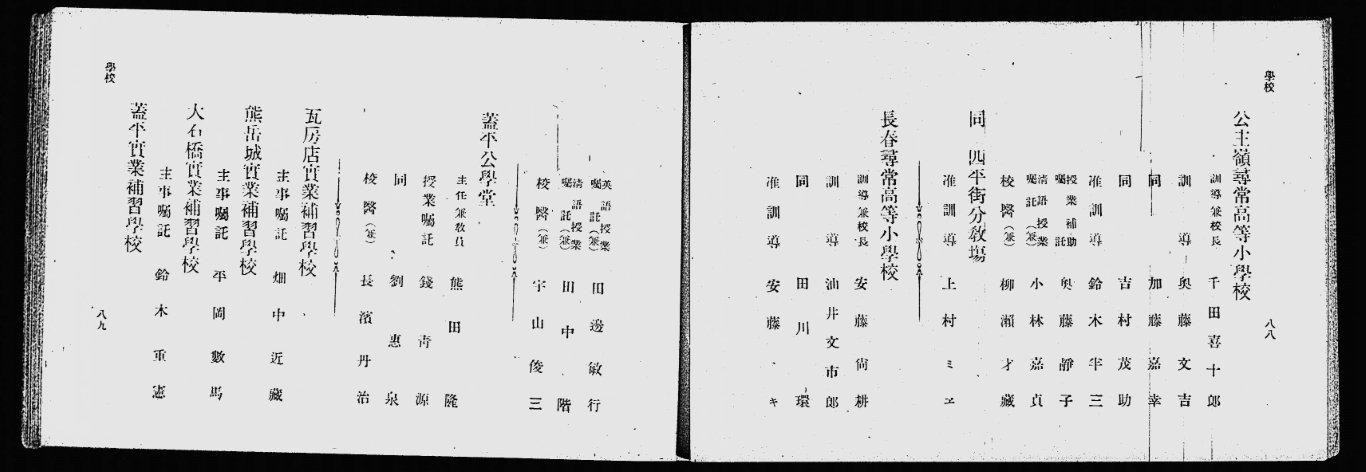 學校
公主嶺尋常高等小學校
訓導兼校長 千田喜十郎
訓導 奥藤文吉
同 加藤嘉幸
同 吉村茂助
准訓導 鈴木半三
授業補助囑託 奥藤靜子
清語授業囑託(兼) 小林嘉貞
校醫(兼) 柳瀨才藏
同 四平街分教場
准訓導 上村ミヱ
長春尋常高等小學校
訓導兼校長 安藤尙耕
訓導 油井文市郎
同 田川環
准訓導 安藤 キ
八八
學校
英語授業囑託(兼) 田邊敏行
淸語授業囑託(兼) 田中階
校醫(兼) 宇山俊三
蓋平公學堂
主任兼敎員 熊田隆
授業囑託 錢靑源
同 劉惠泉
校醫(兼) 長濱丹治
瓦房店實業補習學校
主事囑託 畑中近藏
熊岳城實業補習學校
主事囑託 平岡數馬
大石橋實業補習學校
主事囑託 鈴木重憲
蓋平實業補習學校
八九